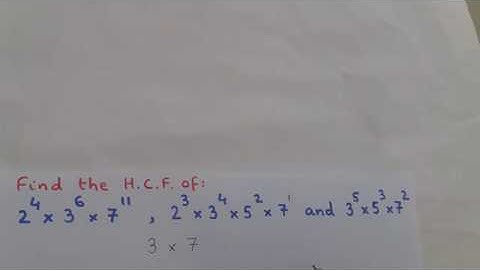 Find the H.C.F. of:
2⁴ × 3⁶ × 7¹¹ , 2³ × 3⁴ × 5² × 7¹ and 3⁵ × 5³ × 7²
3 × 7